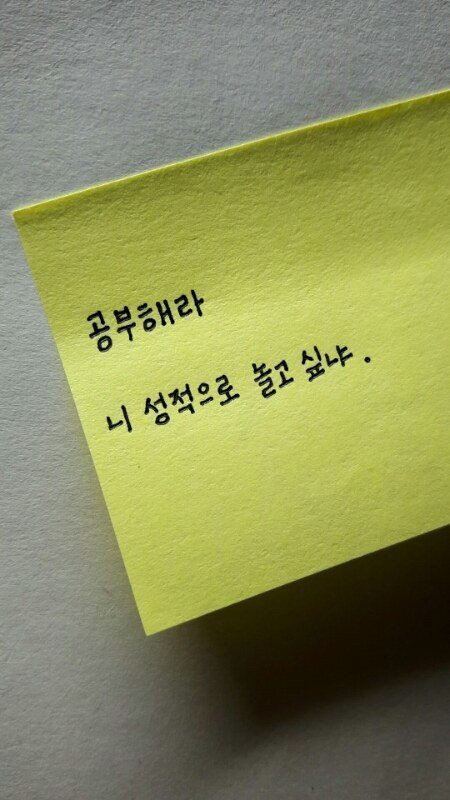 공부해라
니 성적으로 놀고 싶냐.